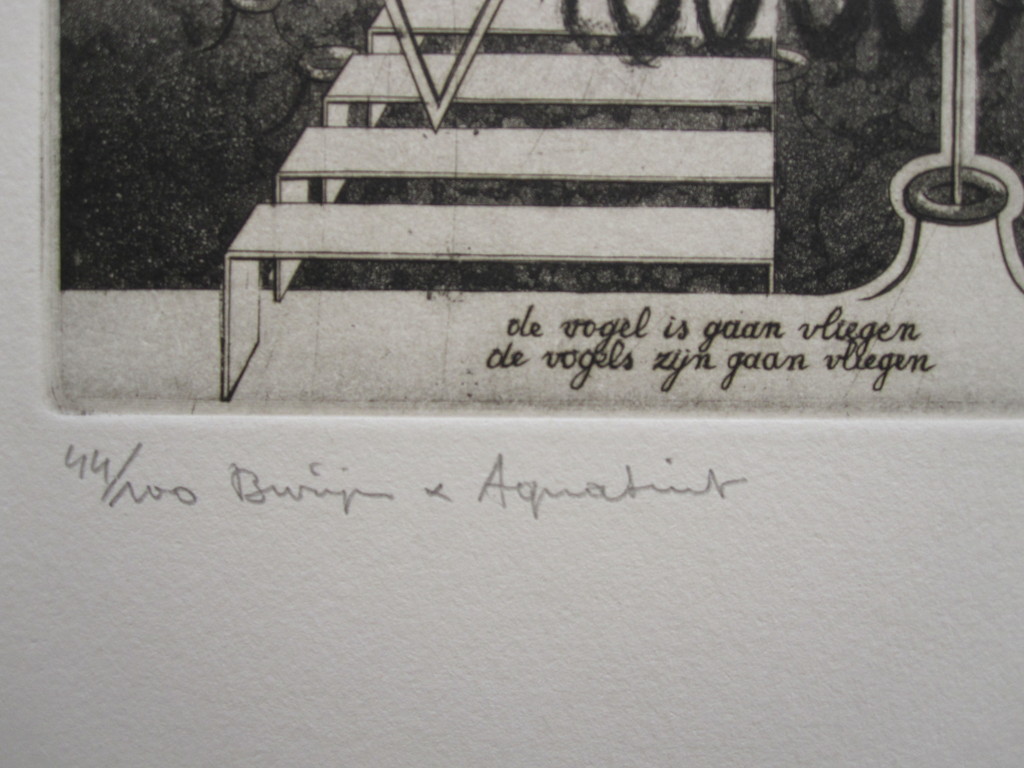 de vogel is gaan vliegen
de vogels zijn gaan vliegen
44/100 Burijn x Aquatint